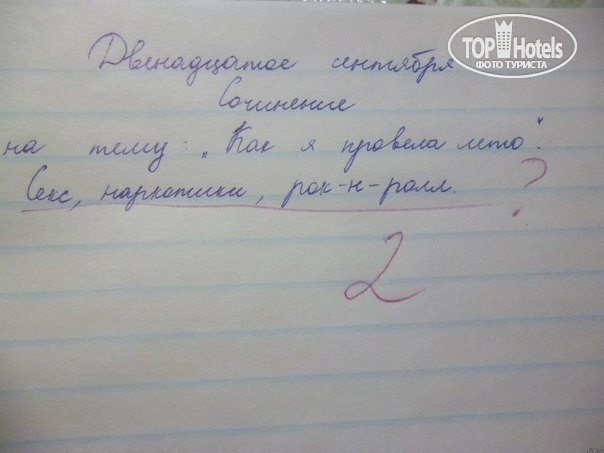 TOP Hotels
ФОТО ТУРИСТА
Двенадцатое сентября
Сочинение
на тему: „Как я провела лето".
Секс, наркотики, рок-н-ролл. ?
2